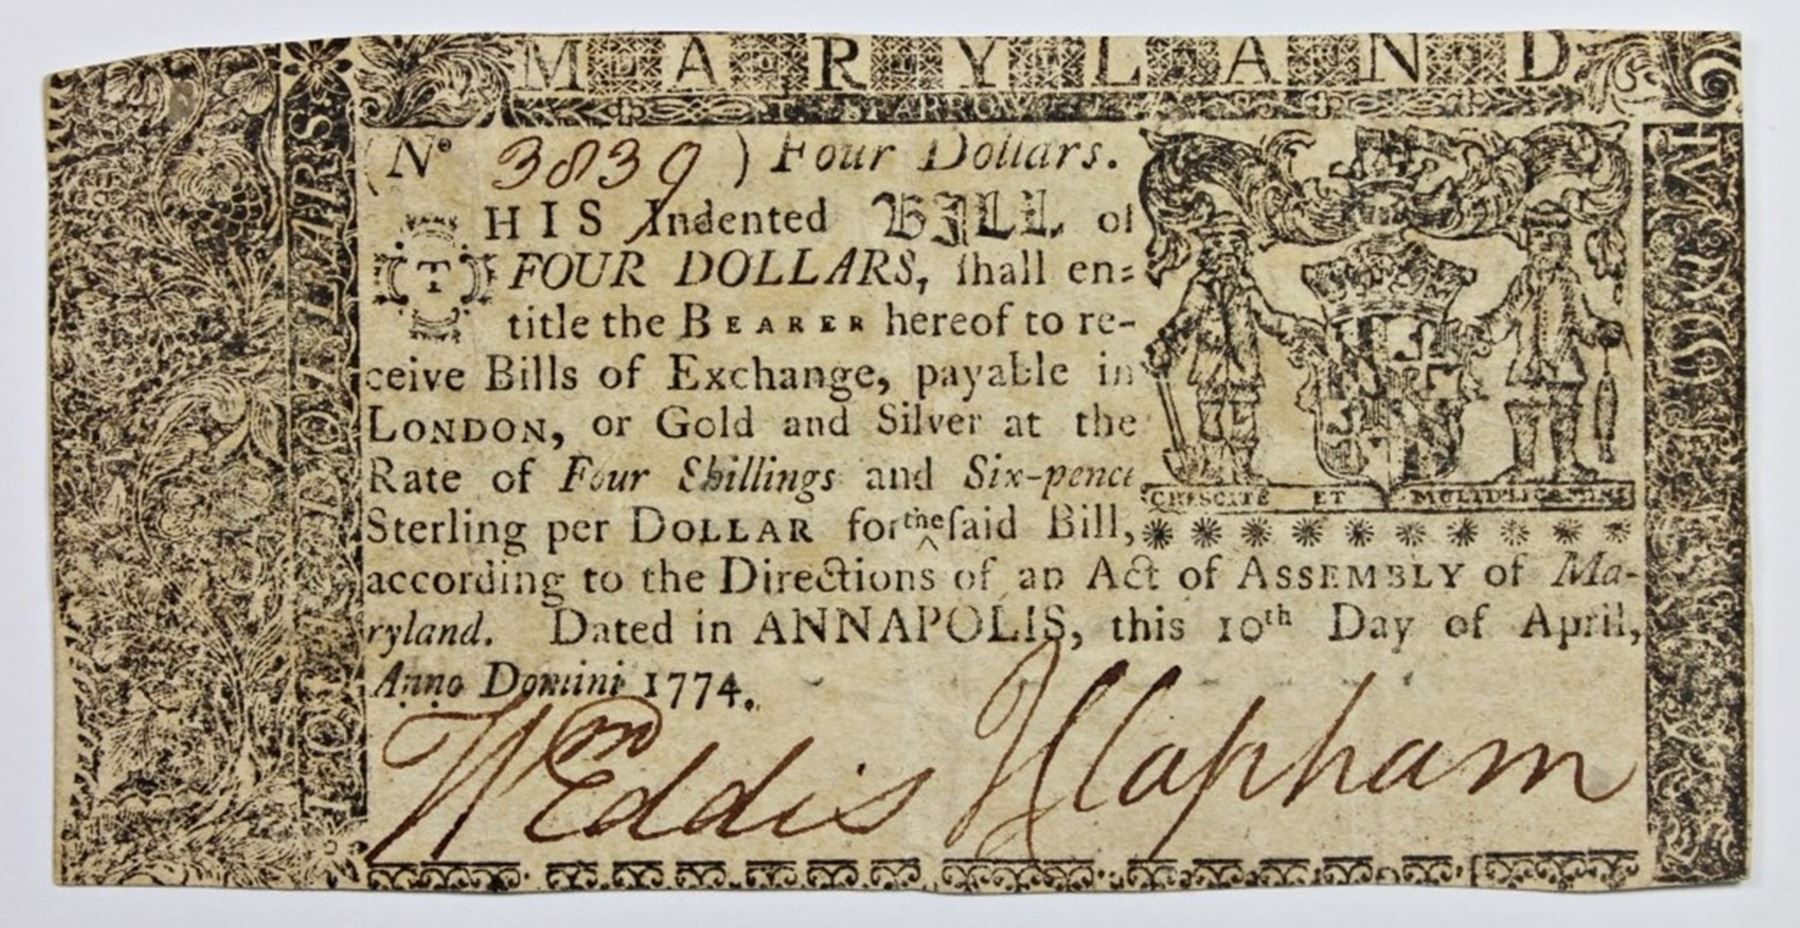 MARYLAND
T. SPARROW
FOUR DOLLARS.
(No 3839) Four Dollars.
THIS Indented BILL of
FOUR DOLLARS, ſhall en=
title the BEARER hereof to re-
ceive Bills of Exchange, payable in
LONDON, or Gold and Silver at the
Rate of Four Shillings and Six-pence
Sterling per DOLLAR for the ſaid Bill,
CRESCITE ET MULTIPLICAMINI
according to the Directions of an Act of ASSEMBLY of Ma-
ryland. Dated in ANNAPOLIS, this 10th Day of April,
Anno Domini 1774.
Wm Eddis J Clapham